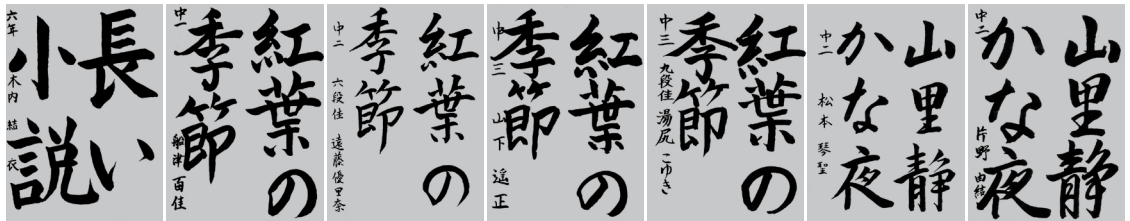 長い
小説
六年 木内 結衣
紅葉の
季節
中一 船津 百佳
紅葉の
季節
中二 六段佳 遠藤優里奈
紅葉の
季節
中三 山下 遥正
紅葉の
季節
中三 九段佳 湯尻 こゆき
山里静
かな夜
中二 松本 琴聖
山里静
かな夜
中二 片野 由結